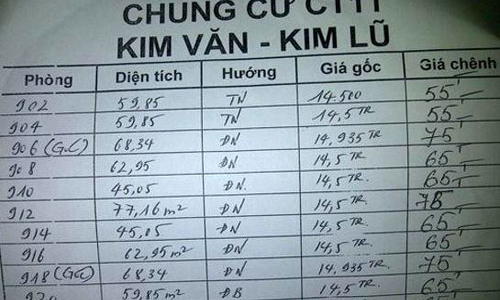 CHUNG CƯ CT11
KIM VĂN - KIM LŨ
Phòng Diện tích Hướng Giá gốc Giá chênh
902 59,85 TN 14.500 55T
904 59,85 TN 14,5 TR 55T
906 (Góc) 68,34 ĐN 14,935 TR 75T
908 62,95 ĐN 14,5 TR. 65T
910 45,05 ĐN. 14,5 TR. 65T
912 77,16 m² ĐN 14,5 TR. 75T
914 45,05 ĐN 14,5 TR. 65T
916 62,95 m² ĐN 14,5 TR. 65T
918 (Góc) 68,34 ĐN 14,935 TR 75T
59,85 m² ĐB 14,5 TR 65